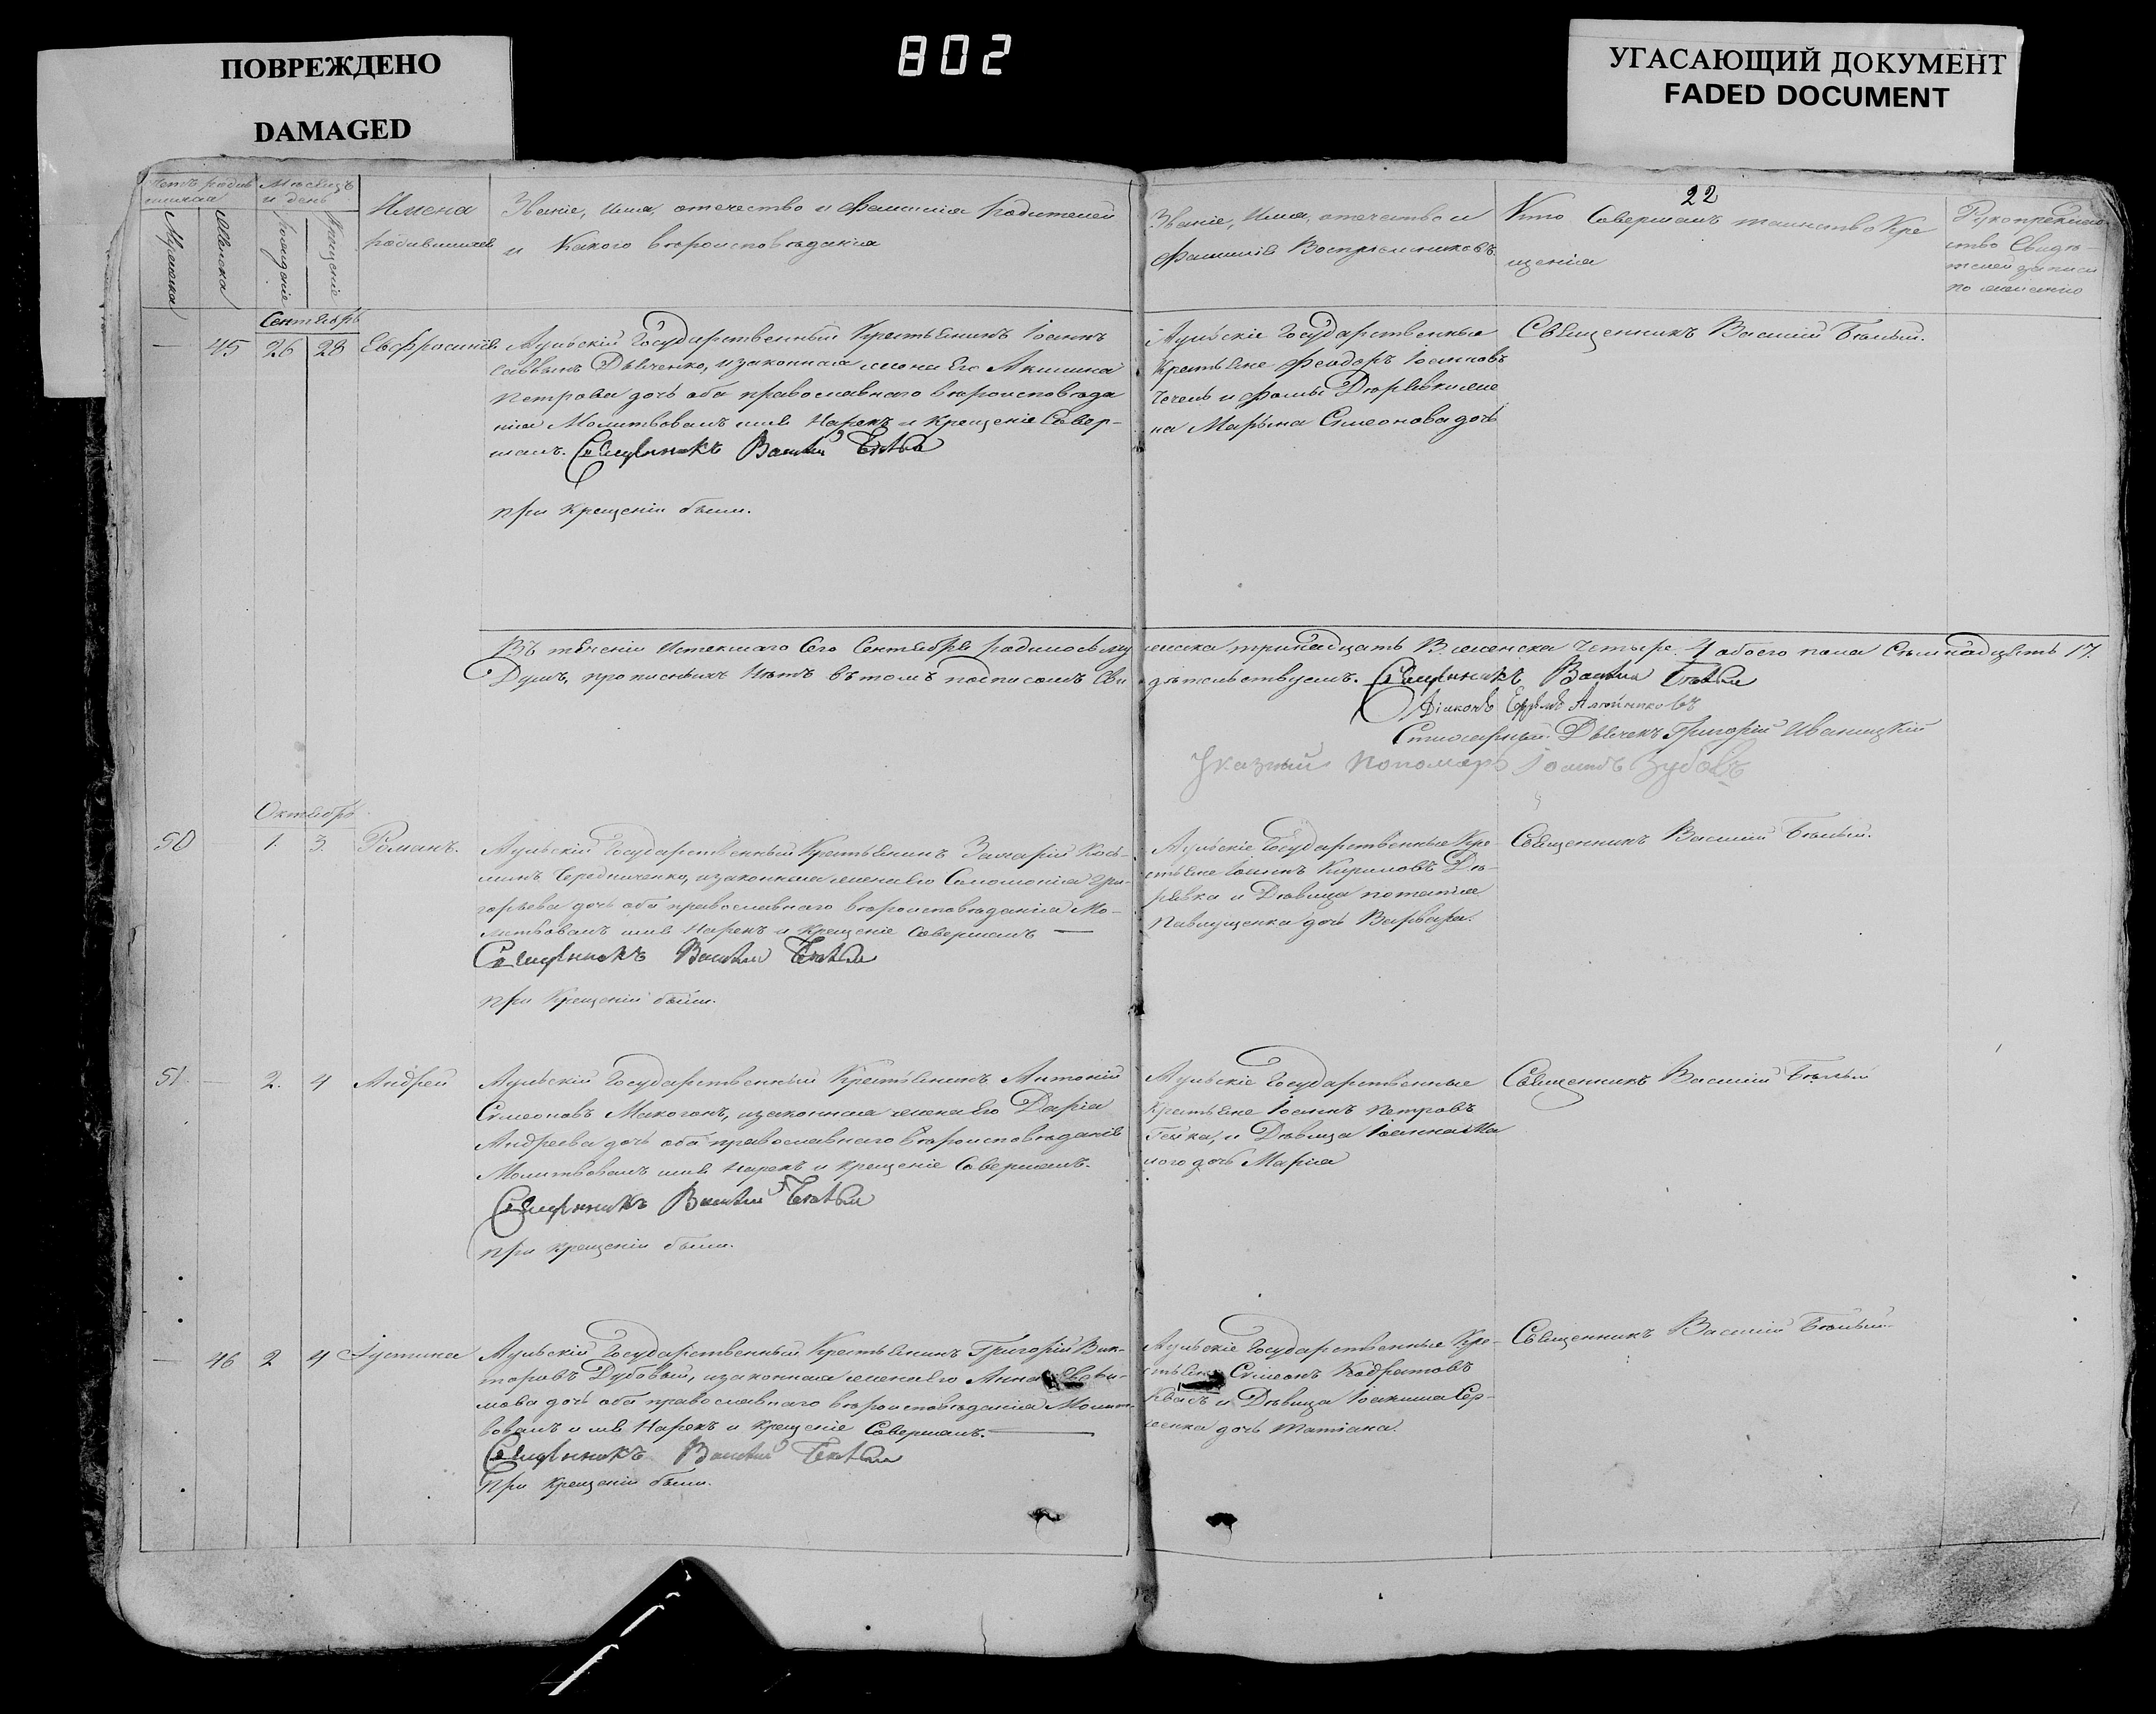 ПОВРЕЖДЕНО
DAMAGED
802
УГАСАЮЩИЙ ДОКУМЕНТ
FADED DOCUMENT
22
Мѣсяцъ
и день
Имена
родившихся
Званіе, имя, отечество и фамилія родителей
и Какого вѣроисповѣданія
Званіе, Имя, отечество и
фамилія Воспріемниковъ.
Кто Совершалъ таинство Кре
щенія
Мужеска
Женска
Рожденіе
Крещеніе
Рукоприклад
ство Свидѣ-
телей записи
по желанію
Сентябрь
— 45 26 28 Евфросинія
Аульскій Государственный Крестьянинъ Іоаннъ
Саввинъ Дьяченко, и законная жена Его Акилина
Петрова дочь оба православнаго вѣроисповѣда
нія Молитвовалъ имя Нарекъ и Крещеніе Совер-
шалъ. Священникъ Василій Бѣлый
при Крещеніи были.
Аульскіе Государственные
крестьяне Феодоръ Іоанновъ
и Фомы жена
на Марѳина Симеонова дочь
Священникъ Василій Бѣлый.
Въ теченіи Истекшаго Сего Сентября родилось му жеска тринадцать Женска Четыре. И обоего пола Семнадцать 17.
Душъ, прописныхъ Нѣтъ въ томъ подписомъ Сви дѣтельствуемъ. Священникъ Василій Бѣлый
Діаконъ Ефремъ Алейниковъ
Дьячекъ Григорій Иваницкій
Указный Пономарь Іоаннъ Зубовъ
Октябрь
50 1. 3. Романъ.
Аульскій Государственный Крестьянинъ Захарій Кось-
минъ Чередниченко, и законная жена Его Соломонія Гри-
горьева дочь оба православнаго вѣроисповѣданія Мо-
литвовалъ имя Нарекъ и Крещеніе Совершалъ —
Священникъ Василій Бѣлый
при Крещеніи были.
Аульскіе Государственные Кре-
стьяне Іоаннъ Кириловъ Дю-
ревка и Дѣвица Потапія
Павлущенка дочь Варвара.
Священникъ Василій Бѣлый.
51. — 2. 4 Андрей
Аульскій Государственный Крестьянинъ Антоній
Симеоновъ Макогонъ, и законная жена Его Дарія
Андреева дочь оба православнаго вѣроисповѣданія
Молитвовалъ имя Нарекъ и Крещеніе Совершалъ.
Священникъ Василій Бѣлый
при Крещеніи были.
Аульскіе Государственные
крестьяне Іоаннъ Петровъ
и Дѣвица Іоанна Ма
лого дочь Марія
Священникъ Василій Бѣлый
— 46 2 4 Іустина
Аульскій Государственный Крестьянинъ Григорій Вик-
торовъ Дубовый, и законная жена Его Анна Евфи-
мова дочь оба православнаго вѣроисповѣданія Молит-
вовалъ имя Нарекъ и Крещеніе Совершалъ. —
Священникъ Василій Бѣлый
при Крещеніи были.
Аульскіе Государственные Кре-
стьяне Симеонъ Кодратовъ
Квасъ и Дѣвица Іоакима Сер-
дочь Татіана.
Священникъ Василій Бѣлый.